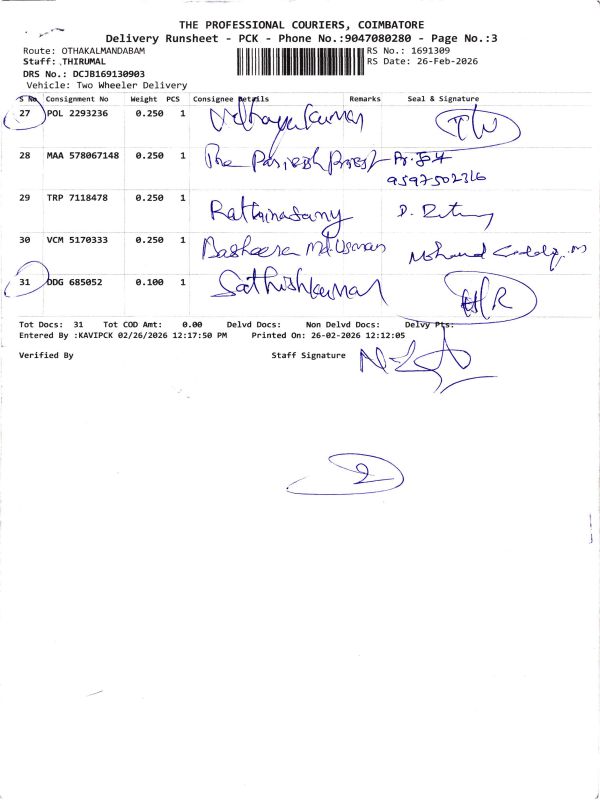 THE PROFESSIONAL COURIERS, COIMBATORE
Delivery Runsheet - PCK - Phone No.:9047080280 - Page No.:3
Route: OTHAKALMANDABAM RS No.: 1691309
Staff: THIRUMAL RS Date: 26-Feb-2026
DRS No.: DCJB169130903
Vehicle: Two Wheeler Delivery
S No. Consignment No Weight PCS Consignee Details Remarks Seal & Signature
27 POL 2293236 0.250 1
28 MAA 578067148 0.250 1 The
9597502316
29 TRP 7118478 0.250 1 Rathinasamy
30 VCM 5170333 0.250 1 Md. Usman
31 DDG 685052 0.100 1 Sathishkumar
Tot Docs: 31 Tot COD Amt: 0.00 Delvd Docs: Non Delvd Docs: Delvy Pts:
Entered By :KAVIPCK 02/26/2026 12:17:50 PM Printed On: 26-02-2026 12:12:05
Verified By Staff Signature
2